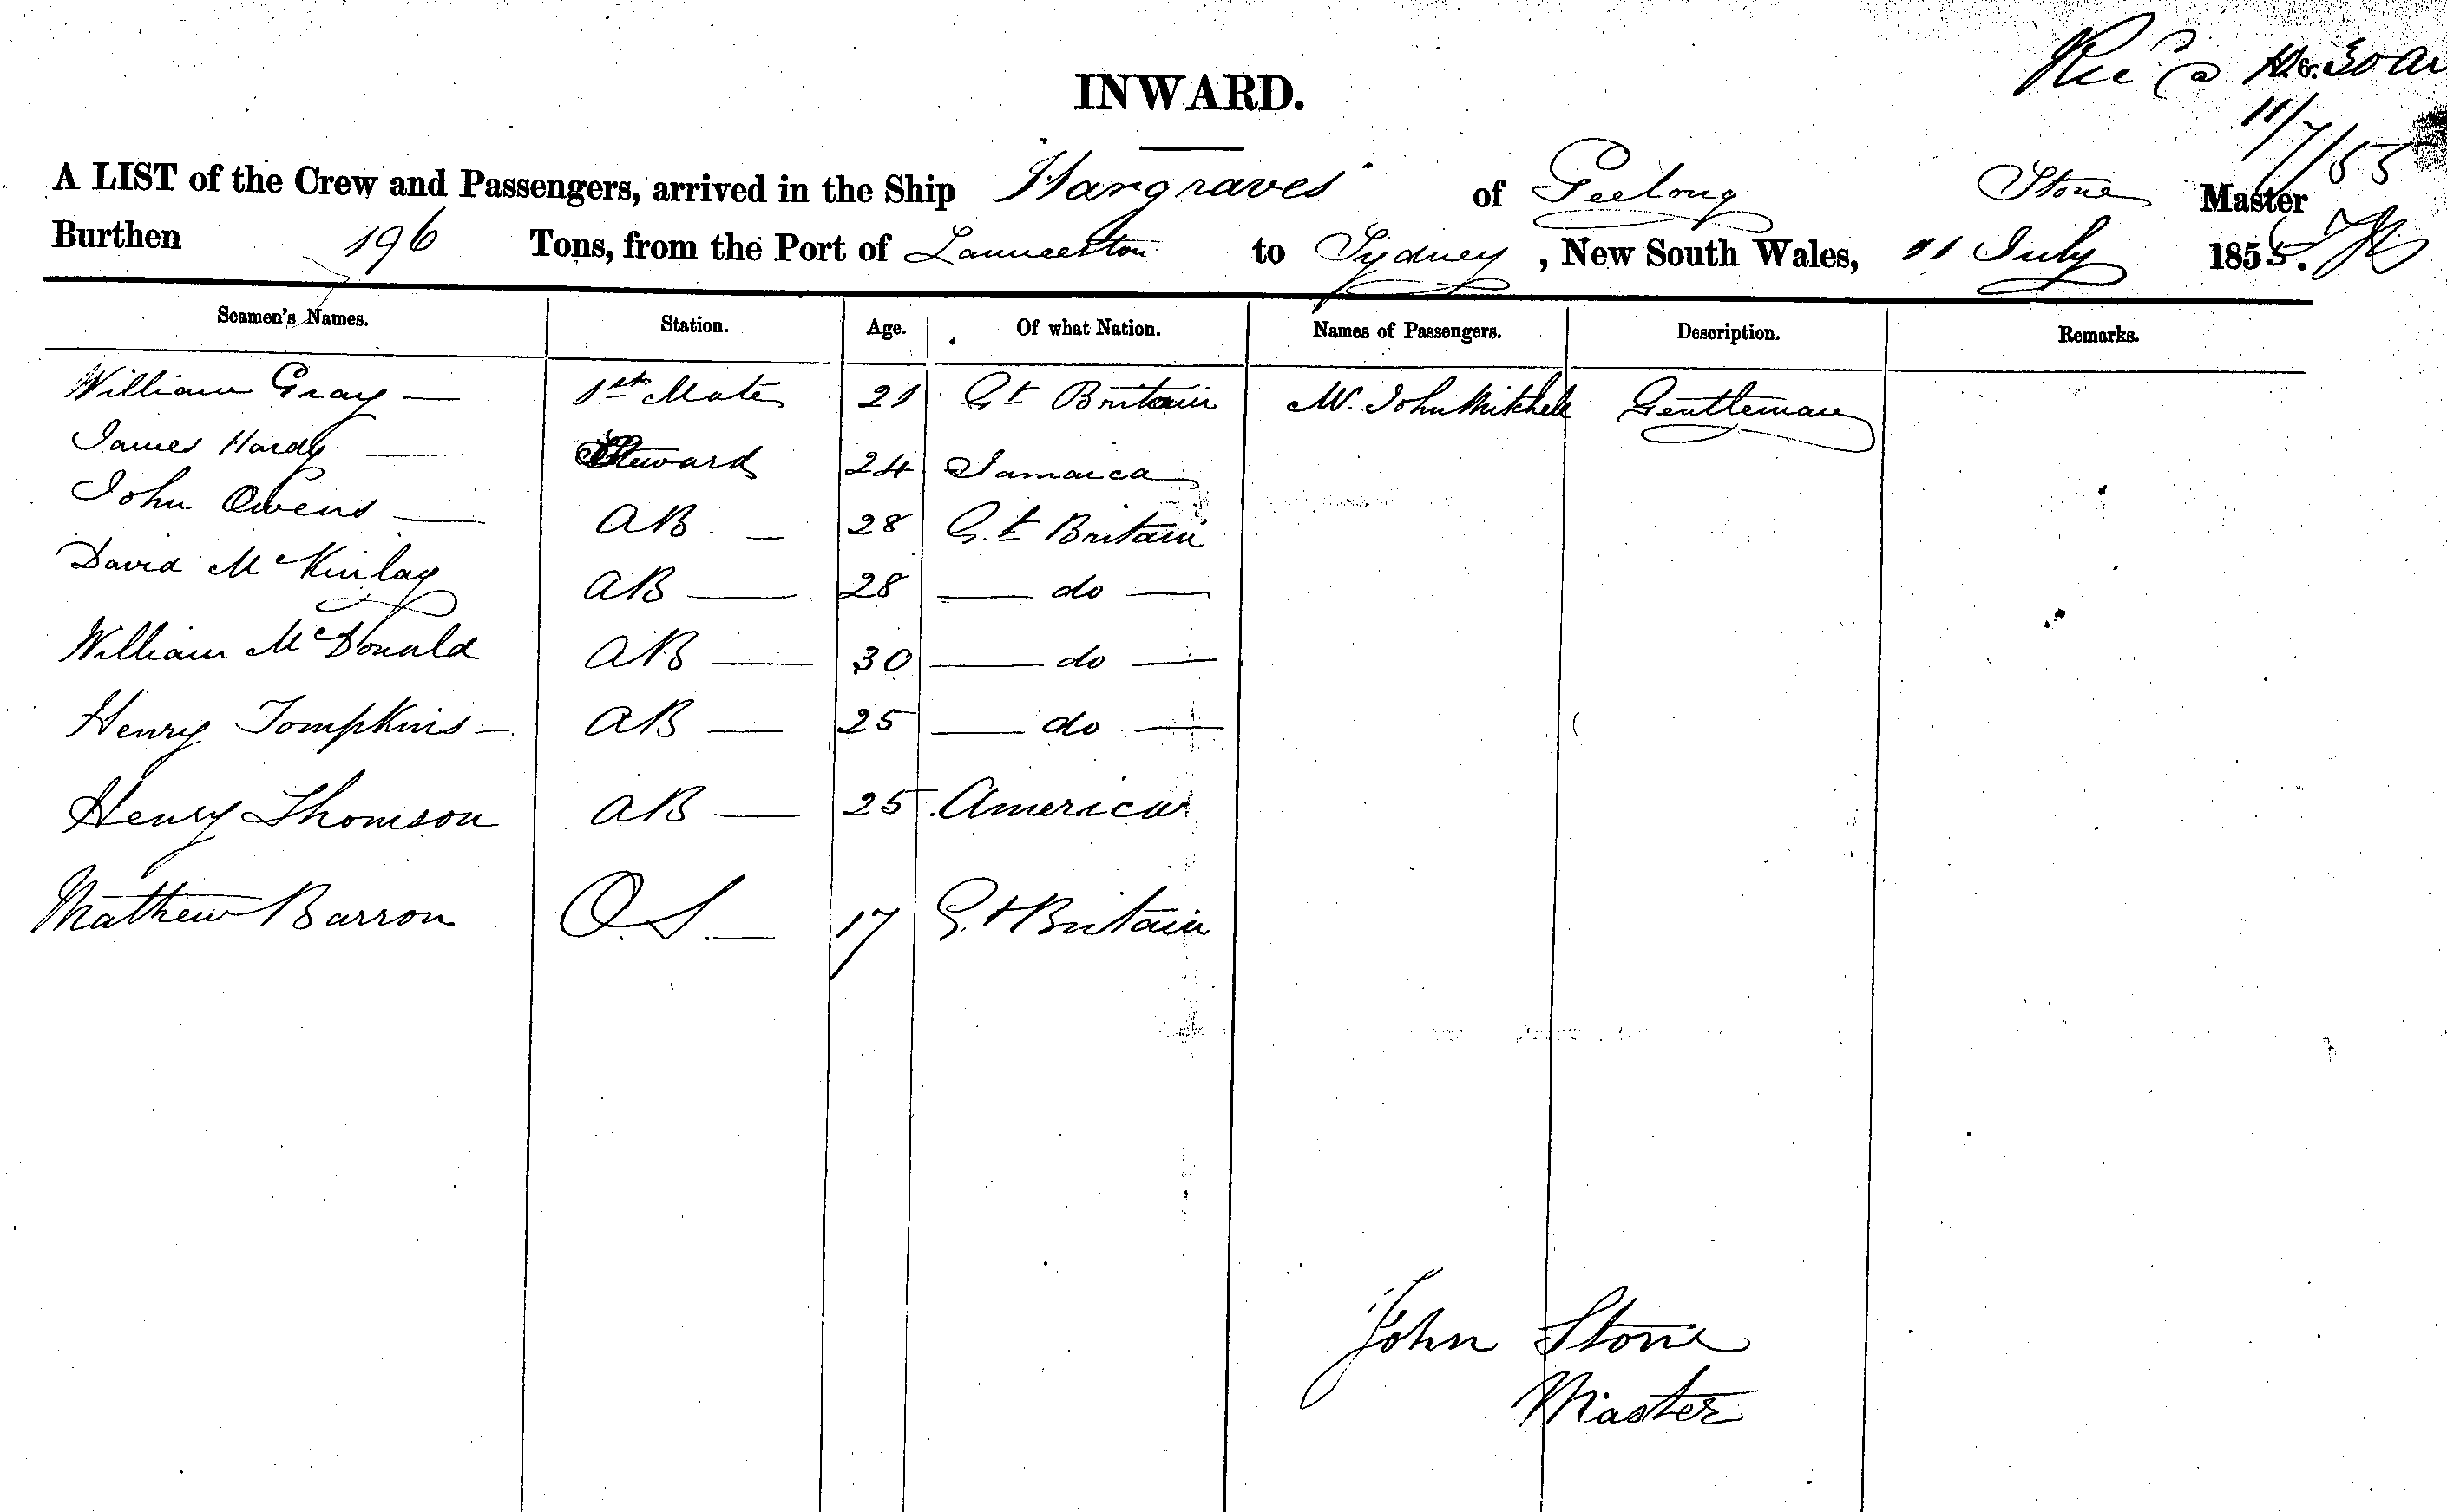 INWARD.
11/7/55
A LIST of the Crew and Passengers, arrived in the Ship Hargraves of Geelong Stone Master
Burthen 196 Tons, from the Port of Launceston to Sydney, New South Wales, 11 July 1855.
Seamen's Names. Station. Age. Of what Nation. Names of Passengers. Description. Remarks.
William Gray — 1st Mate 21 Gt Britain Mr. John Mitchell Gentleman
James Hardy — Steward 24 Jamaica
John Owens — AB. — 28 Gt Britain
David McKinlay AB — 28 — do —
William McDonald AB — 30 — do —
Henry Tompkins — AB — 25 — do —
Henry Thomson AB — 25 America
Mathew Barron O.S. — 17 Gt Britain
John Stone
Master